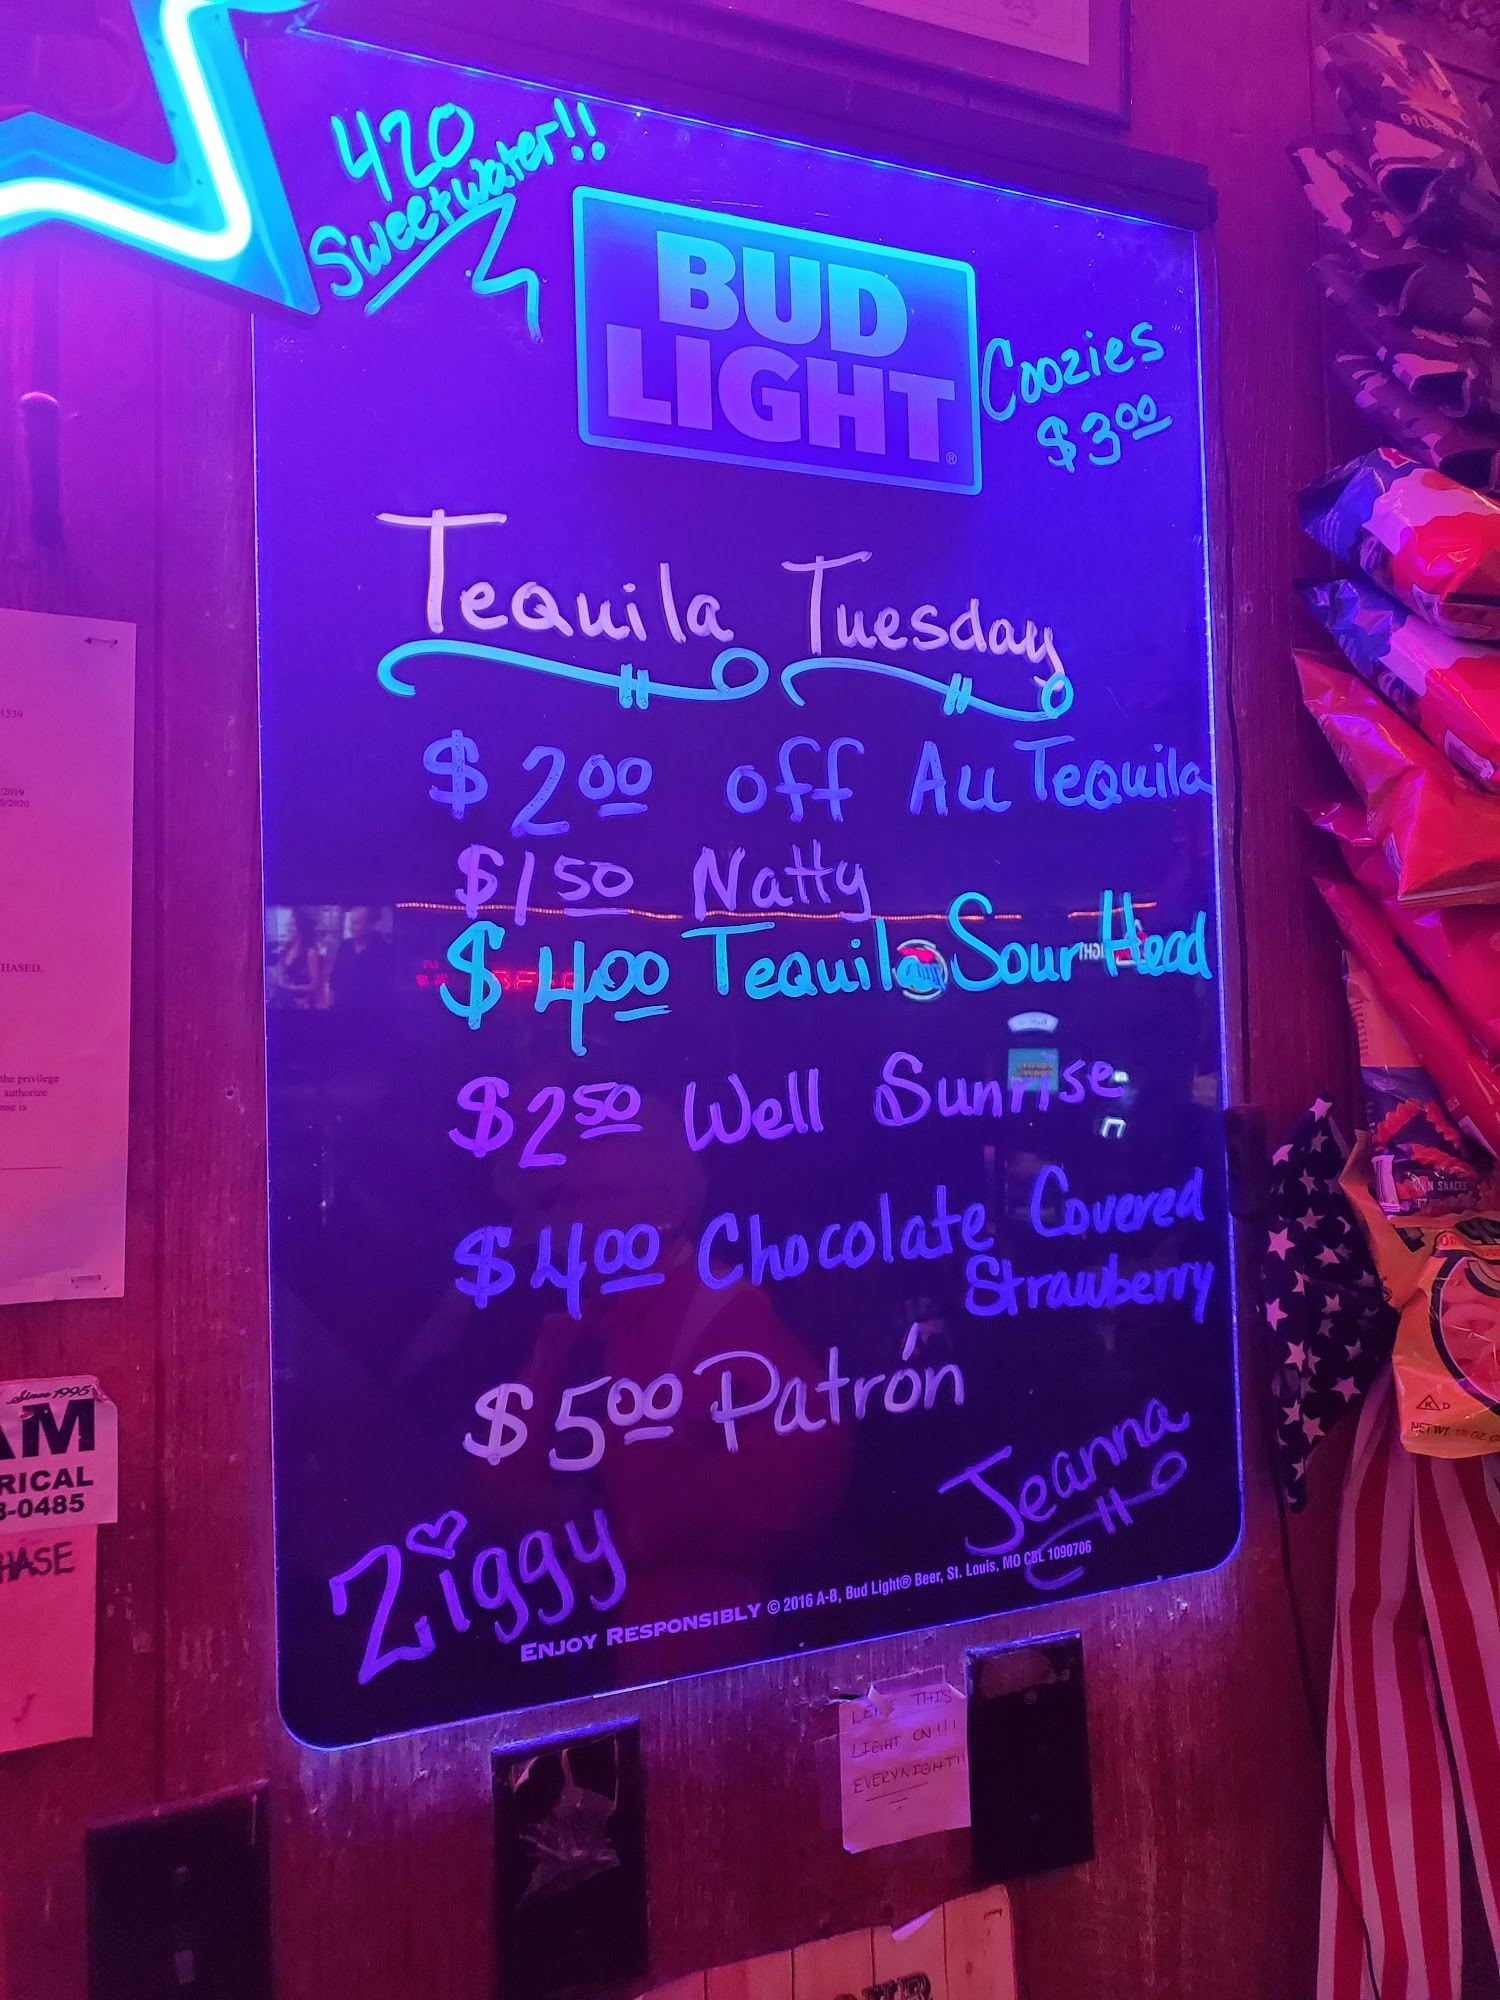 420
Sweetwater!!
BUD
LIGHT®
Coozies
$3.00
Tequila Tuesday
$2.00 off All Tequila
$1.50 Natty
$4.00 Tequila Sour Head
$2.50 Well Sunrise
$4.00 Chocolate Covered
Strawberry
$5.00 Patrón
Jeanna
Ziggy
ENJOY RESPONSIBLY © 2016 A-B, Bud Light® Beer, St. Louis, MO CBL 1090706
THIS
LIGHT ON!!!
EVERYNIGHT!!
4539
2019
2020
HASED.
the privilege
authorize
nse is
Since 1995
AM
RICAL
-0485
HASE
NET WT.